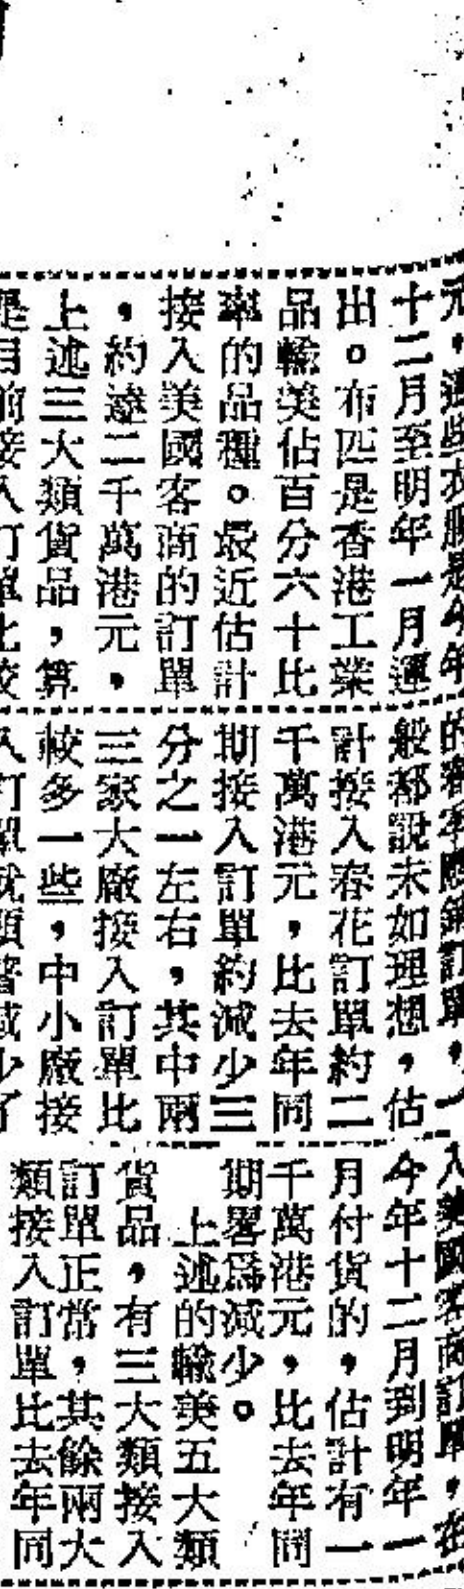 元，這些衣服是今年
十二月至明年一月運
出。布匹是香港工業
品輸美佔百分六十比
率的品種。最近估計
接入美國客商的訂單
，約達二千萬港元，
上述三大類貨品，算
是目前接入訂單比較
的春季應銷訂單，一
般都說未如理想，估
計接入春花訂單約二
千萬港元，比去年同
期接入訂單約減少三
分之一左右，其中兩
三家大廠接入訂單比
較多一些，中小廠接
入訂單就顯著減少了
入美國客商訂單，在
今年十二月到明年一
月付貨的，估計有一
千萬港元，比去年同
期畧爲減少。
上述的輸美五大類
貨品，有三大類接入
訂單正常，其餘兩大
類接入訂單比去年同